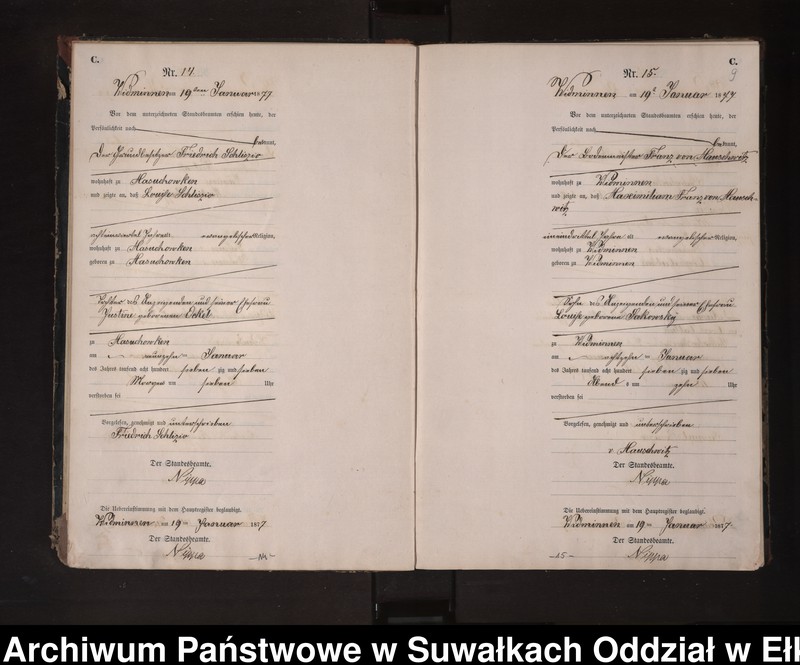 C.
Nr. 14
Widminnen am 19ten Januar 1877
Vor dem unterzeichneten Standesbeamten erschien heute, der
Persönlichkeit nach
bekannt,
Der Grundbesitzer Friedrich Schlizio
wohnhaft zu Masuchowken
und zeigte an, daß Louise Schlizio
Jahre alt, evangelischer Religion,
wohnhaft zu Masuchowken
geboren zu Masuchowken
Tochter des Anzeigenden und seiner Ehefrau
Justine geborenen
zu Masuchowken
am neunzehn Januar
des Jahres tausend acht hundert sieben zig und sieben
Morgens um sieben Uhr
verstorben sei
Vorgelesen, genehmigt und unterschrieben
Friedrich Schlizio
Der Standesbeamte.
Nippa
Die Uebereinstimmung mit dem Hauptregister beglaubigt.
Widminnen am 19ten Januar 1877
Der Standesbeamte.
Nippa
C.
9
Nr. 15.
Widminnen am 19t Januar 1877
Vor dem unterzeichneten Standesbeamten erschien heute, der
Persönlichkeit nach
bekannt,
Der Bodenmeister Franz von Manschwitz
wohnhaft zu Widminnen
und zeigte an, daß Maximilian Franz von Mansch-
witz
Jahre alt evangelischer Religion,
wohnhaft zu Widminnen
geboren zu Widminnen
Sohn des Anzeigenden und seiner Ehefrau
Louise geborene Sakowsky
zu Widminnen
am achtzehn Januar
des Jahres tausend acht hundert sieben zig und sieben
Abend s um zehn Uhr
verstorben sei
Vorgelesen, genehmigt und unterschrieben
v. Manschwitz
Der Standesbeamte.
Nippa
Die Uebereinstimmung mit dem Hauptregister beglaubigt.
Widminnen am 19ten Januar 1877
Der Standesbeamte.
-15- Nippa
Archiwum Państwowe w Suwałkach Oddział w Ełk